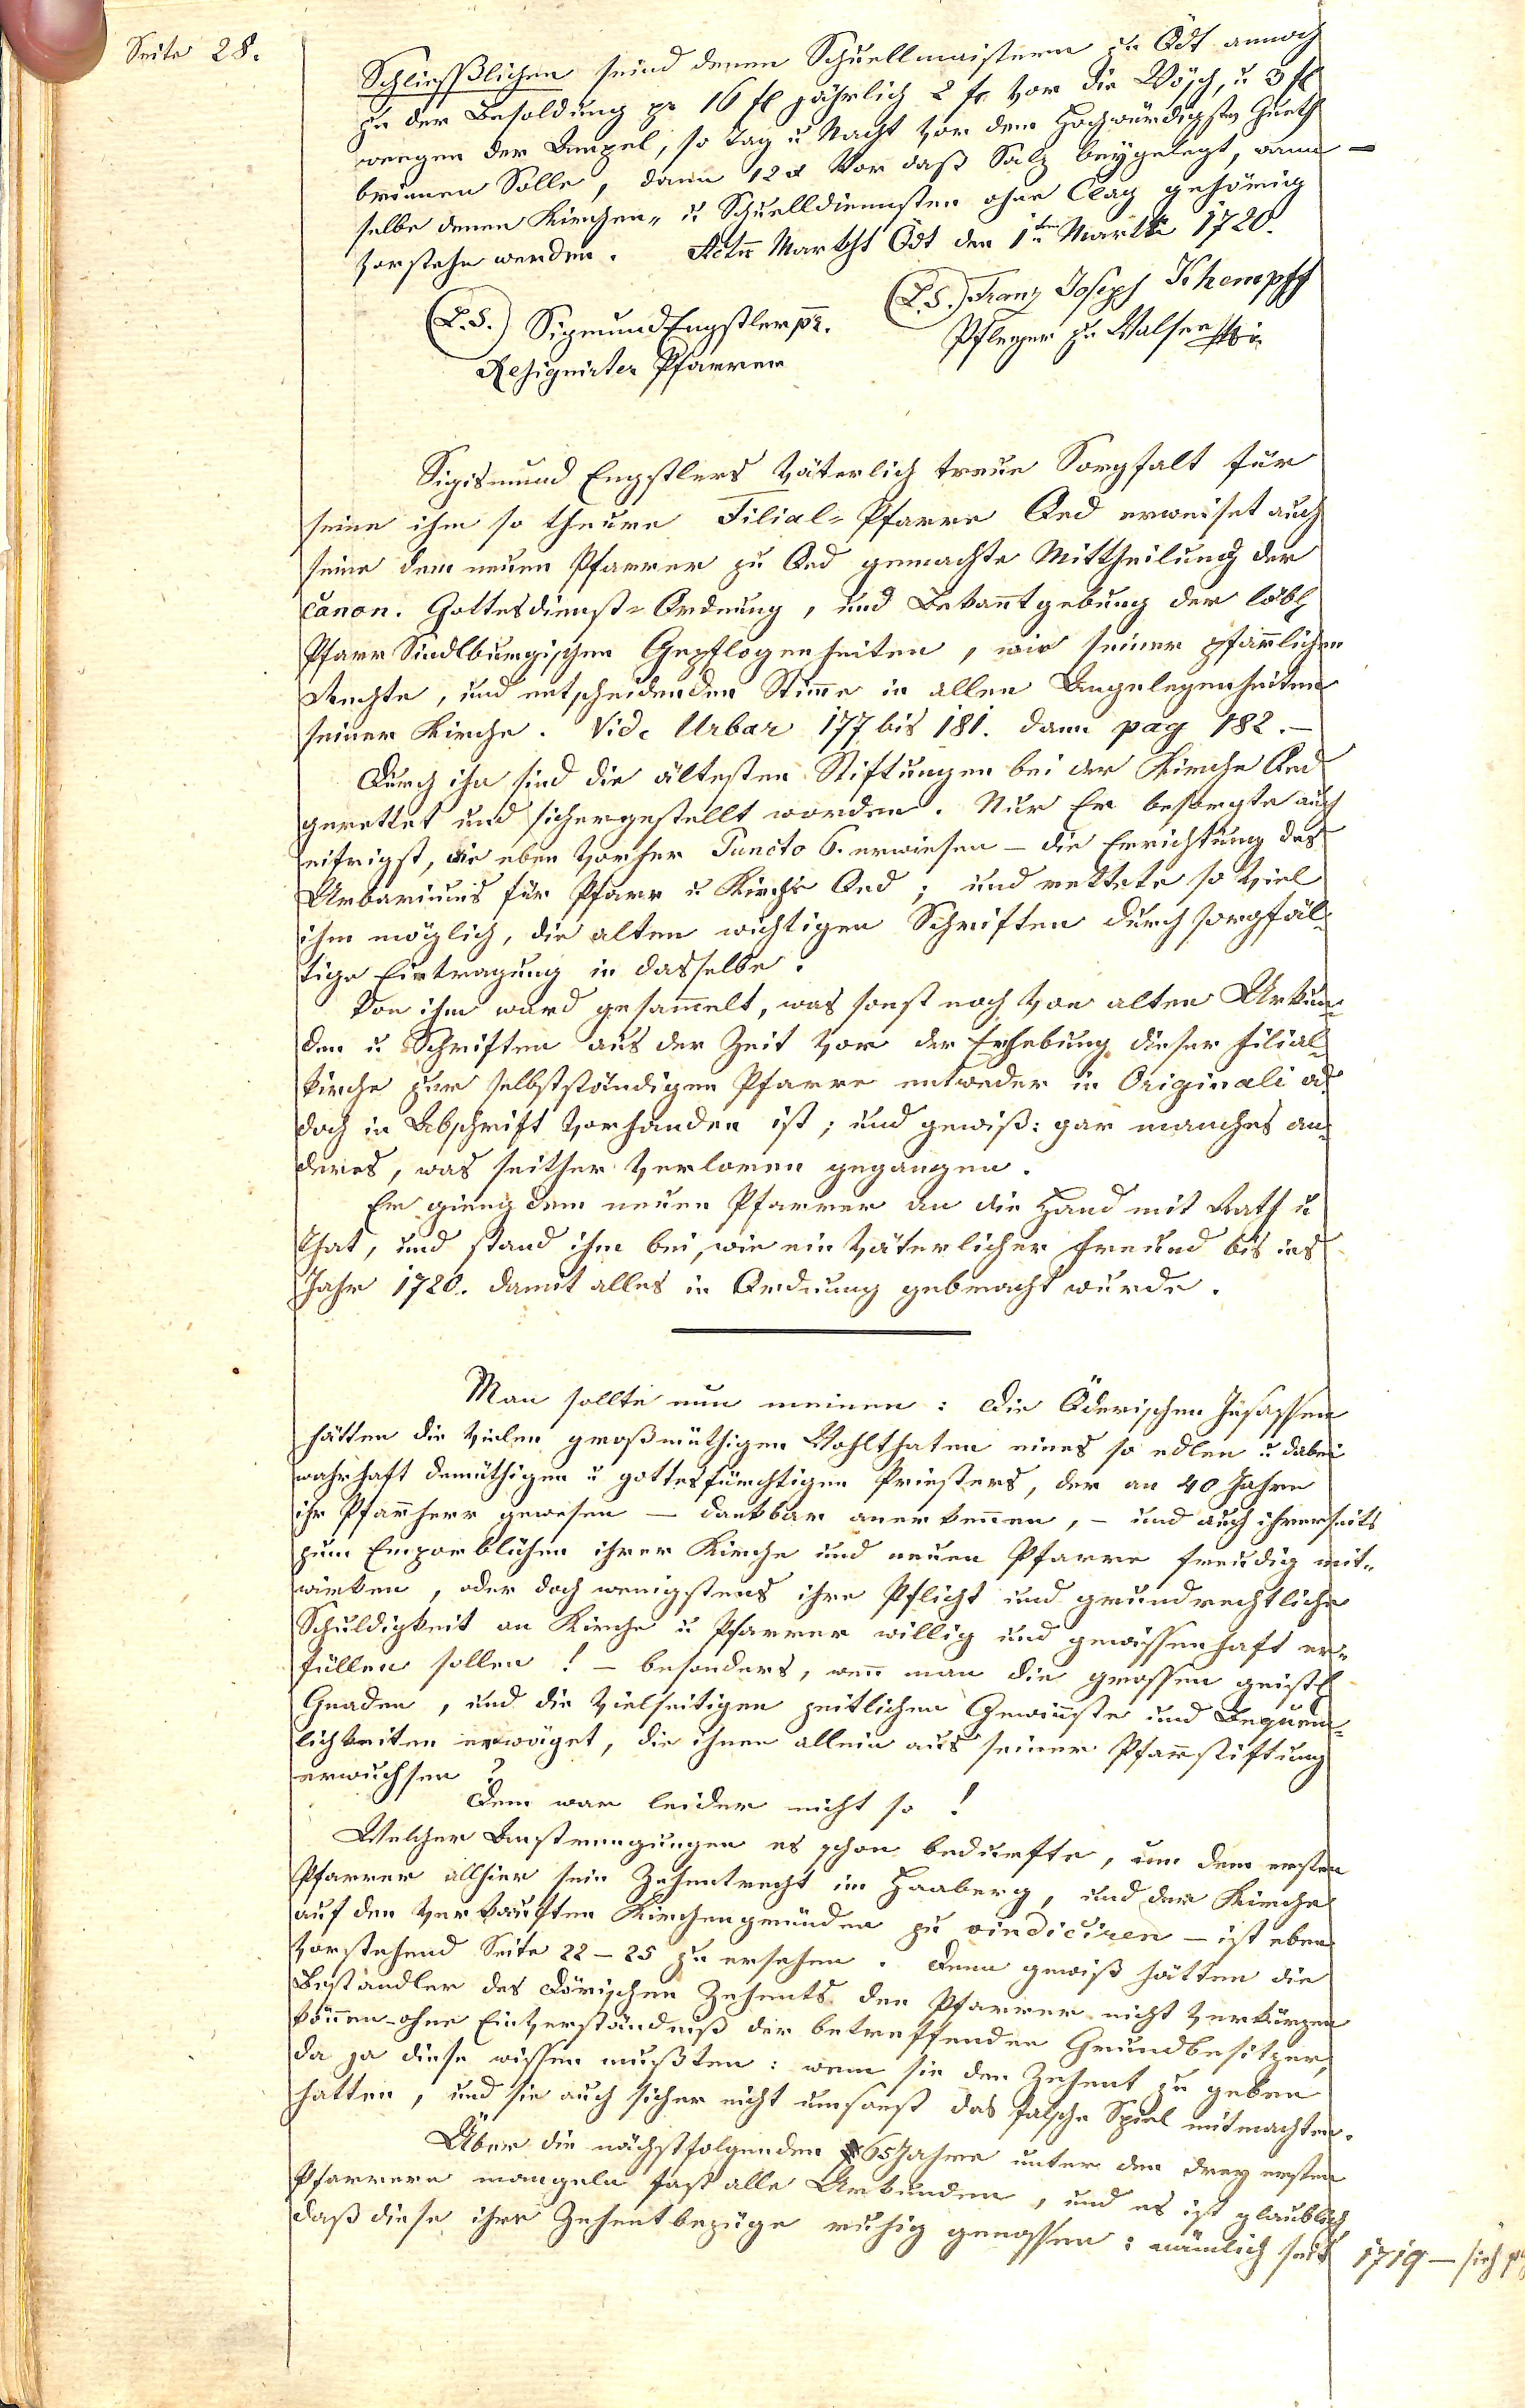 Seite 28.
Schliesßlichen seind denen Schuellmaistern zu Ödt annoch
zu der Besoldung pr 16 fl jährlich 2 fl vor die Wösch, u 3 fl
wegen der Ampel, so Tag u Nacht vor dem Hochwürdigste Gueth
brinnen Solle, dann 12 x vor daß Salz beygelegt, wann
selbe denen Kirchen- u Schuelldiensten ohne Clag gehörig
vorstehn werden. Actu Markht Ödt den 1ten Martii 1720.
(L.S.) Franz Joseph Khempff
(L.S.) Sigmund Engstler pr.
Pfleger zu Walsee
Resignirter Pfarrer
Sigismund Engstlers väterlich treue Sorgfalt für
seine ihm so theure Filial-Pfarre Oed erweiset auch
seine dem neuen Pfarrer zu Oed gemachte Mittheilung der
canon. Gottesdienst-Ordnung, und Bekanntgebung der löbl
Pfarr Sindlburgischen Gepflogenheiten, wie seiner pfarrlichen
Rechte, und entscheidenden Stimme in allen Angelegenheiten
seiner Kirche. Vide Urbar 177 bis 181. dann pag 182.–
Durch ihn sind die ältesten Stiftungen bei der Kirche Oed
gerettet und sichergestellt worden. Nur Er besorgte auch
eifrigst, wie eben vorher Puncto 6. erwiesen – die Errichtung des
Urbariums für Pfarr u Kirche Oed; und rettete so viel
ihm möglich, die alten wichtigen Schriften durch sorgfäl-
tige Eintragung in dasselbe.
Von ihm ward gesammelt, was sonst noch von alten Urkun-
den u Schriften aus der Zeit vor der Erhebung dieser Filial-
kirche zur selbstständigen Pfarre entweder in Originali od
doch in Abschrift vorhanden ist; und gewiß: gar manches an-
deres, was seither verloren gegangen.
Er gieng dem neuen Pfarrer an die Hand mit Rath u
That, und stand ihm bei, wie ein väterlicher Freund bis ins
Jahr 1720. damit alles in Ordnung gebracht wurde.
Man sollte nun meinen: die Öderischen Insassen
hätten die vielen großmüthigen Wohlthaten eines so edlen u dabei
wahrhaft demüthigen u gottesfürchtigen Priesters, der an 40 Jahre
ihr Pfarrherr gewesen – dankbar anerkennen, – und auch ihrerseits
zum Emporblühen ihrer Kirche und neuen Pfarre freudig mit-
wirken, oder doch wenigstens ihre Pflicht und grundrechtliche
Schuldigkeit an Kirche u Pfarrer willig und gewissenhaft er-
füllen sollen! – besonders, wenn man die grossen geistl
Gnaden, und die vielseitigen zeitlichen Gewinnste und Bequem-
lichkeiten erwäget, die ihnen allein aus seiner Pfarrstiftung
erwuchsen?
Dem war leider nicht so!
Welcher Anstrengungen es schon bedurfte, um dem ersten
Pfarrer allhier sein Zehentrecht im Haaberg, und der Kirche
auf den verkauften Kirchengründen zu vindiciren – ist eben
vorstehend Seite 22–25 zu ersehen. Denn gewiß hätten die
Beständler des Dörischen Zehents den Pfarrer nicht verkürzen
können – ohne Einverständniß der betreffenden Grundbesitzer,
da ja diese wissen mußten: wem sie den Zehent zu geben
hatten, und sie auch sicher nicht umsonst das falsche Spiel mitmachten.
Über die nächstfolgenden 65 Jahre unter den drey ersten
Pfarrern mangeln fast alle Urkunden, und es ist glaublich
daß diese ihre Zehentbezüge ruhig genossen: nämlich seit 1719 – sieh